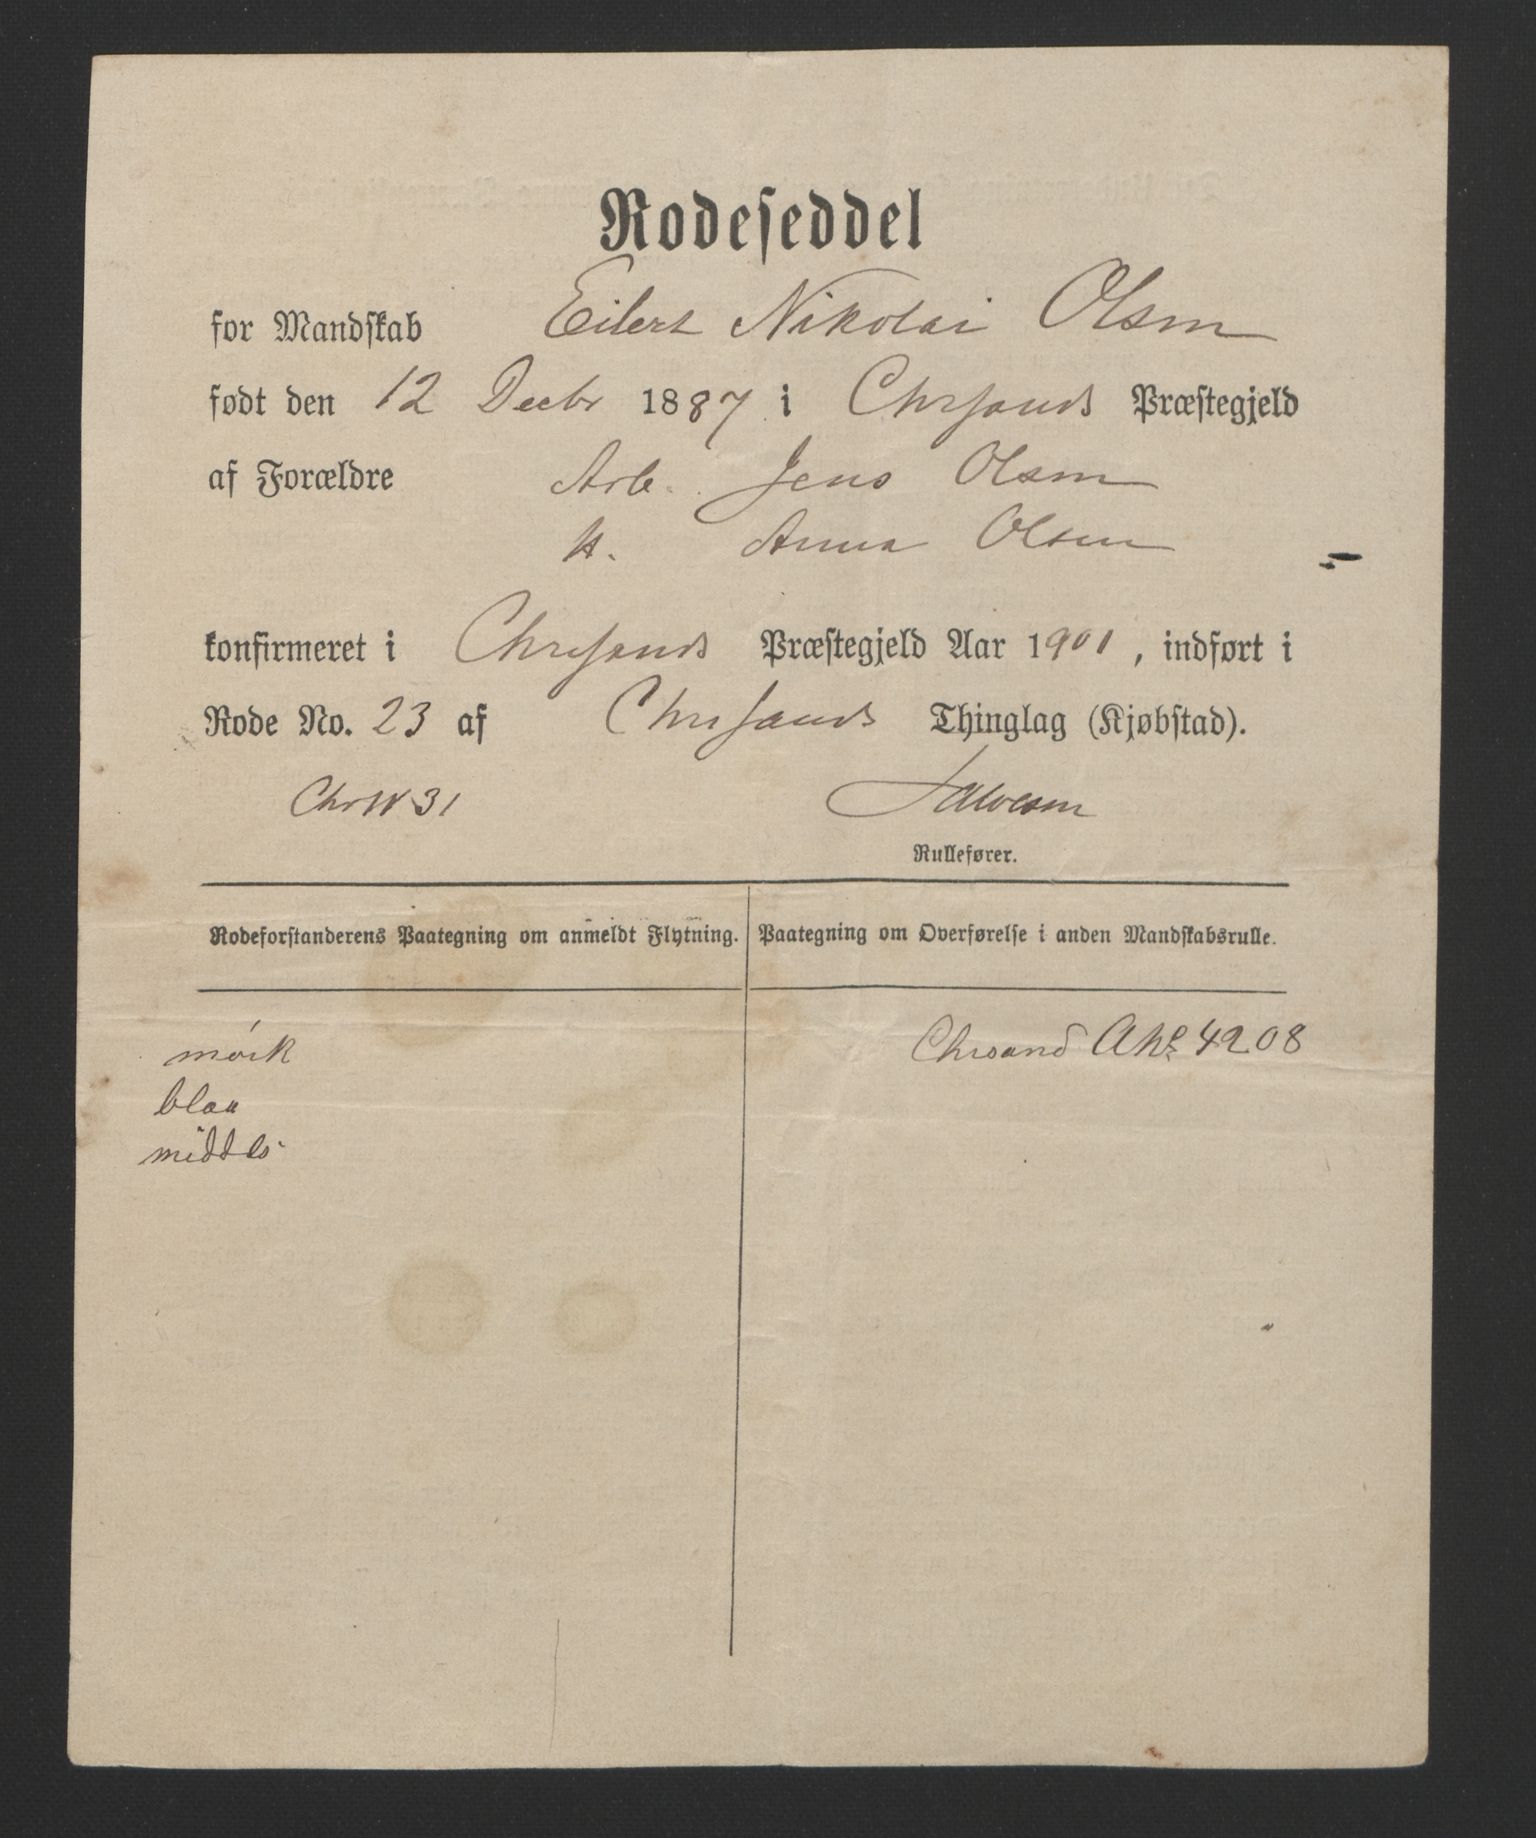 Rodeseddel
for Mandskab Eilert Nikolai Olsen
født den 12 Decbr 1887 i Chrsands Præstegjeld
af Forældre Arb. Jens Olsen
H. Anna Olsen
konfirmeret i Chrsands Præstegjeld Aar 1901, indført i
Rode No. 23 af Chrsands Thinglag (Kjøbstad).
31 Salvesen
Rullefører.
Rodeforstanderens Paategning om anmeldt Flytning.
Paategning om Overførelse i anden Mandskabsrulle.
mørk
blaa
middls
Chrsand A No 4208